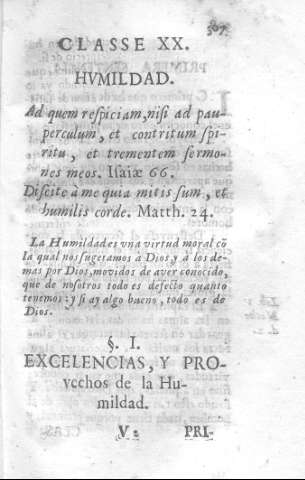 307
CLASSE XX.
HVMILDAD.
Ad quem respiciam, nisi ad pau-
perculum, et contritum spi-
ritu, et trementem sermo-
nes meos. Isaiæ 66.
Discite à me quia mitis sum, et
humilis corde. Matth. 24.
La Humildad es vna virtud moral cõ
la qual nos sugetamos à Dios, y à los de-
mas por Dios, movidos de aver conocido,
que de nosotros todo es defecto quanto
tenemos: y si ay algo bueno, todo es de
Dios.
§. I.
EXCELENCIAS, Y PRO-
vechos de la Hu-
mildad.
V 2 PRI-